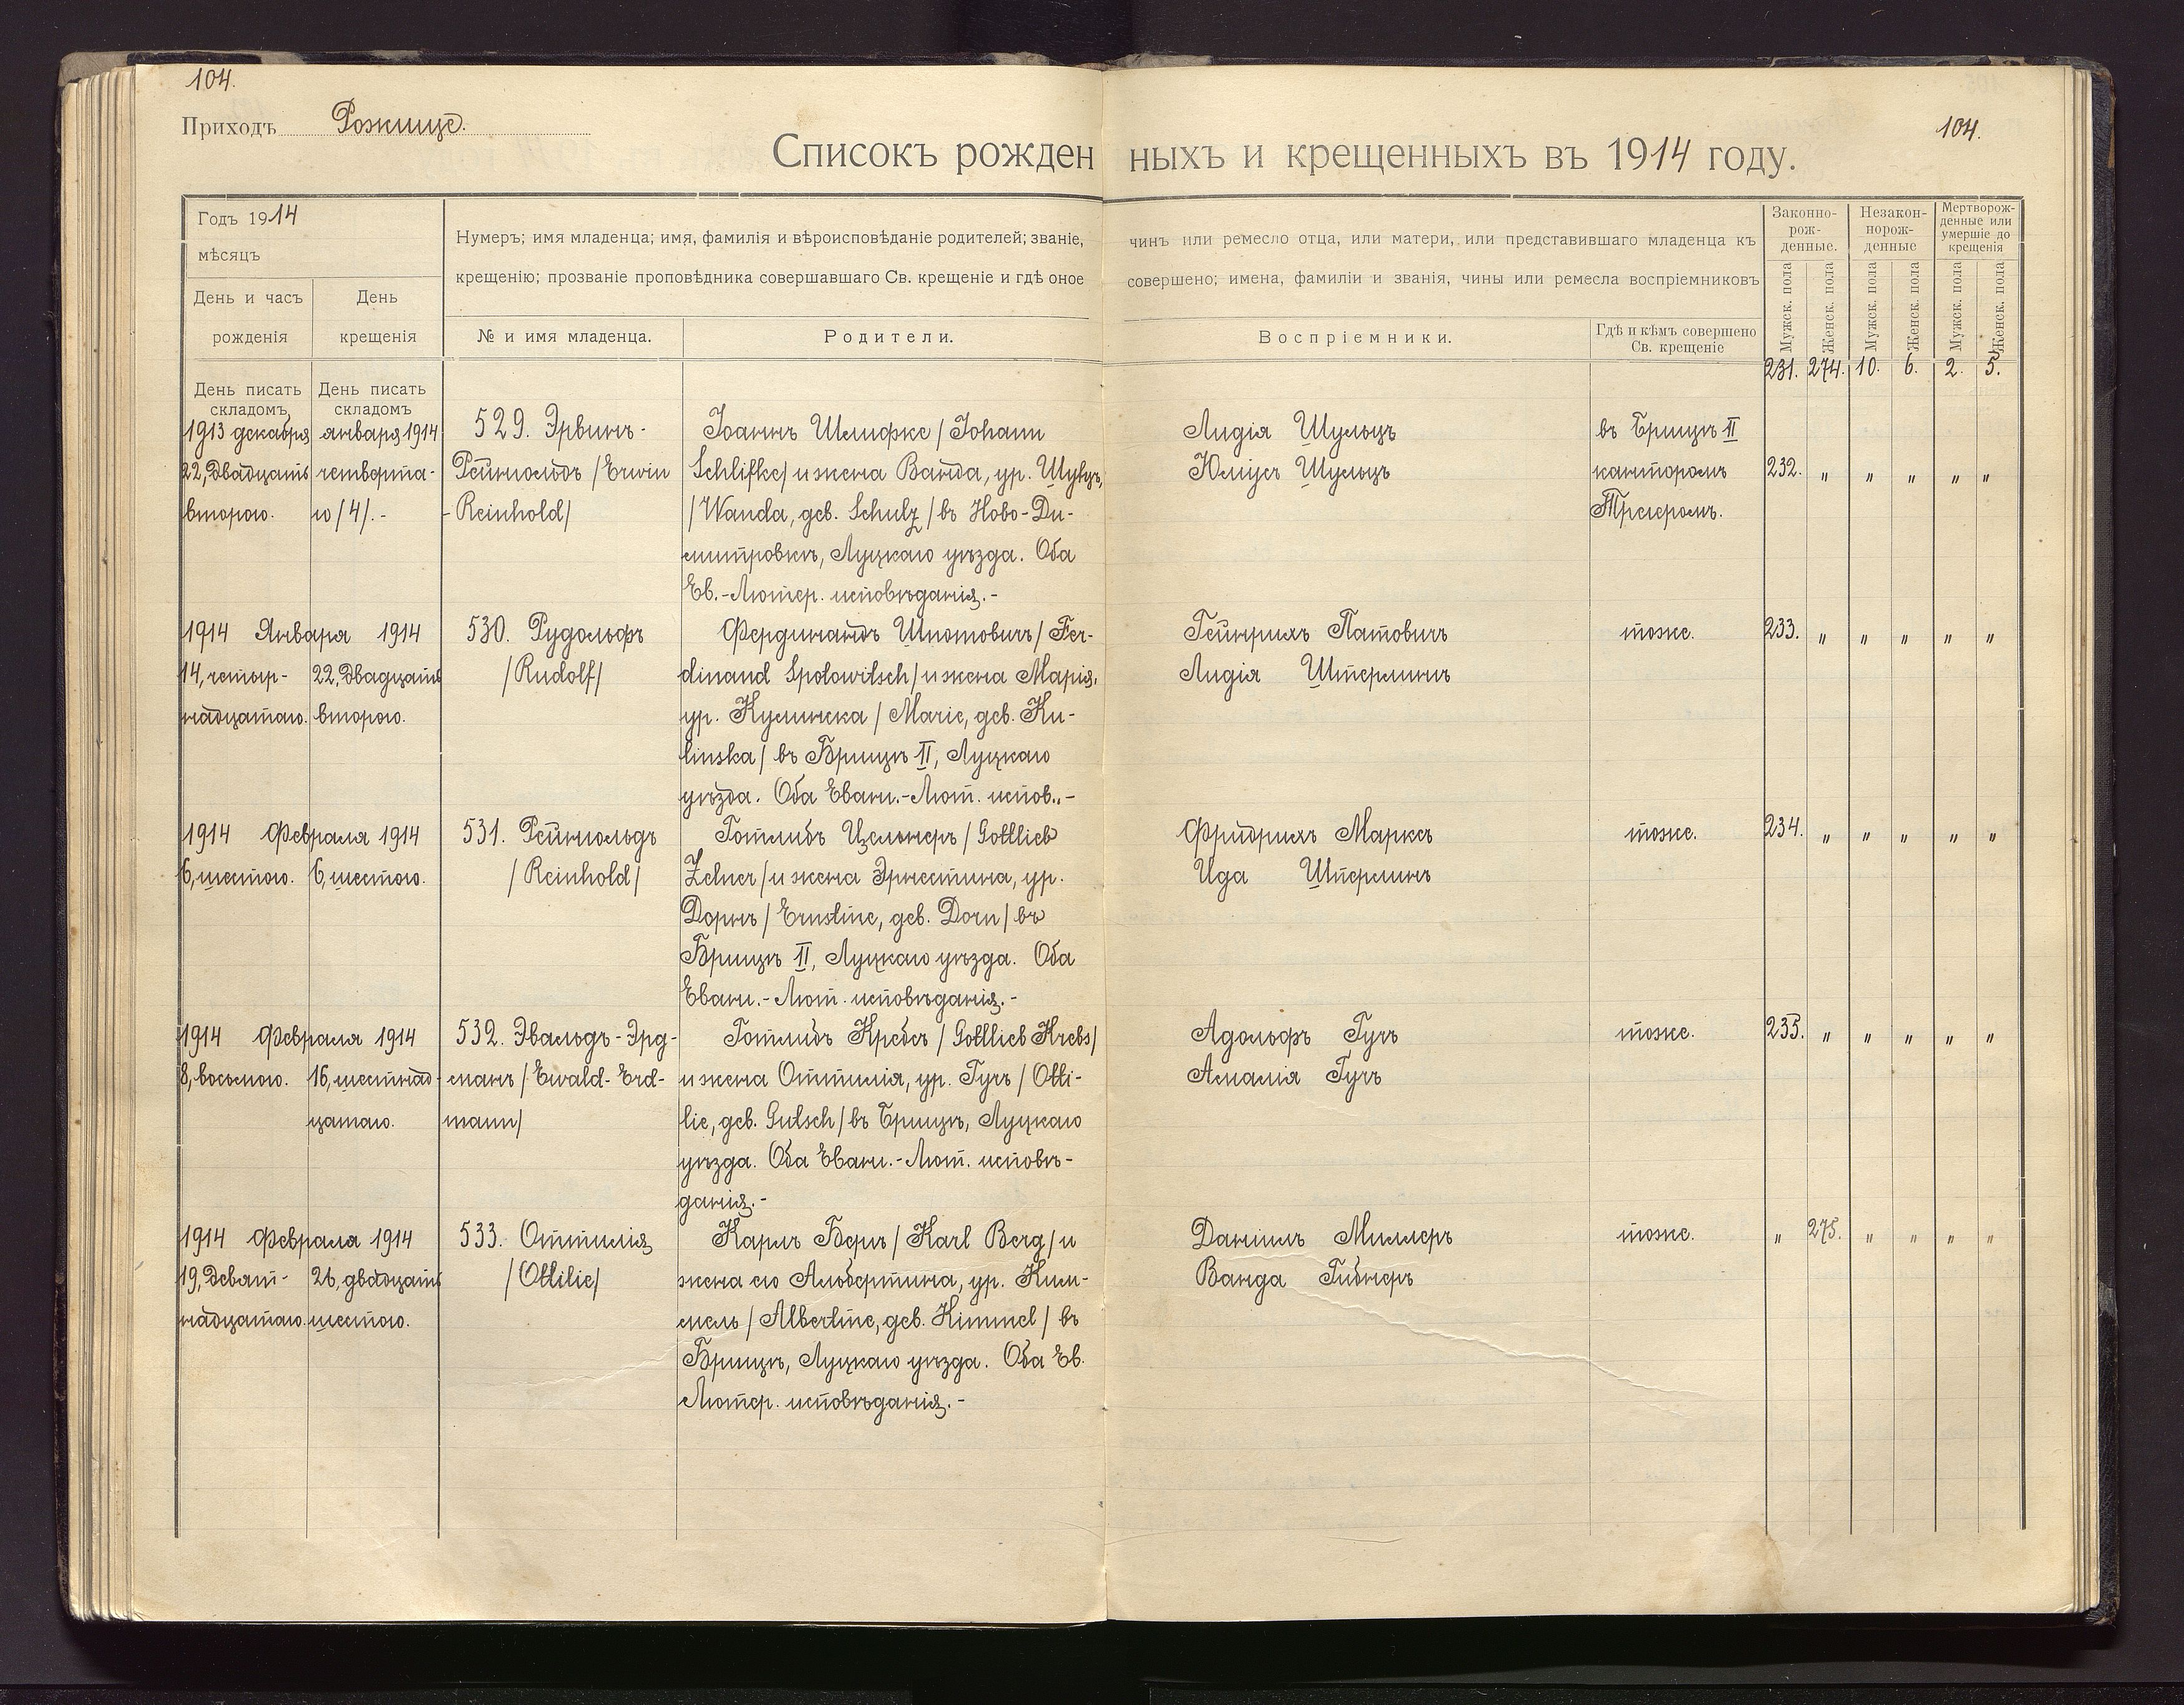 104.
Приходъ Рожище.
104.
Списокъ рожденныхъ и крещенныхъ въ 1914 году.
Годъ 1914
мѣсяцъ
День и часъ рожденія
День крещенія
Нумеръ; имя младенца; имя, фамилія и вѣроисповѣданіе родителей; званіе, чинъ или ремесло отца, или матери, или представившаго младенца къ
крещенію; прозваніе проповѣдника совершавшаго Св. крещеніе и гдѣ оное совершено; имена, фамиліи и званія, чины или ремесла воспріемниковъ
№ и имя младенца.
Родители.
Воспріемники.
Гдѣ и кѣмъ совершено
Св. крещеніе
Законно-
рож-
денные.
Незакон-
норож-
денные
Мертворож-
денные или
умершіе до
крещенія
Мужск. пола
Женск. пола
Мужск. пола
Женск. пола
Мужск. пола
Женск. пола
День писать
складомъ
День писать
складомъ
231. 274. 10. 6. 2. 5.
1913 декабря
22, двадцать
второго.
января 1914
четверта-
го /4/.-
529. Эрвинъ-
Рейнгольдъ /Erwin
-Reinhold/
Іоаннъ Шлифке /Johann
Schlifke/ и жена Ванда, ур. Шульцъ,
/Wanda, geb. Schulz/ въ Ново-Ди-
митровкѣ, Луцкаго уѣзда. Оба
Ев.-Лютер. исповѣданія.-
Лидія Шульцъ
Юліусъ Шульцъ
въ Брищѣ II
канторомъ
Трегеромъ.
232. " " " " "
1914 Января 1914
14, четыр-
надцатаго.
22, двадцать
второго.
530. Рудольфъ
/Rudolf/
Фердинандъ Шпотовичъ /Fer-
dinand Spotowitsch/ и жена Марія,
ур. Кулинска /Marie, geb. Ku-
linska/ въ Брищѣ II, Луцкаго
уѣзда. Оба Еванг.-Лют. испов..-
Гейнрихъ Патовичъ
Лидія Штерлингъ
тоже.
233. " " " " "
1914 Февраля 1914
6, шестого.
6, шестого.
531. Рейнгольдъ
/Reinhold/
Готлибъ Цельнеръ /Gottlieb
Zelner/ и жена Эрнестина, ур.
Дорнъ /Ernstine, geb. Dorn/ въ
Брищѣ II, Луцкаго уѣзда. Оба
Еванг.-Лют. исповѣданія.-
Фридрихъ Марксъ
Ида Штерлингъ
тоже.
234. " " " " "
1914 Февраля 1914
8, восьмого.
16, шестнад-
цатаго.
532. Эвальдъ-Эрд-
манъ /Ewald-Erd-
mann/
Готлибъ Кребсъ /Gottlieb Krebs/
и жена Оттилія, ур. Гучъ /Otti-
lie, geb. Gutsch/ въ Брищѣ, Луцкаго
уѣзда. Оба Еванг.-Лют. исповѣ-
данія.-
Адольфъ Гучъ
Амалія Гучъ
тоже.
235. " " " " "
1914 Февраля 1914
19, девят-
надцатаго.
26, двадцать
шестого.
533. Оттилія
/Ottilie/
Карлъ Бергъ /Karl Berg/ и
жена его Альбертина, ур. Ким-
мель /Albertine, geb. Kimmel/ въ
Брищѣ, Луцкаго уѣзда. Оба Ев.
Лютер. исповѣданія.-
Даніилъ Миллеръ
Ванда Гибнеръ
тоже.
" 275. " " " "